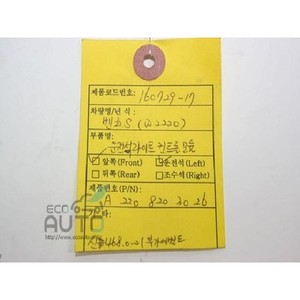 제품코드번호: 160729-17
차량명/년식:
벤츠S (W220)
부품명:
운전석라이트 컨트롤모듈
앞쪽(Front) 운전석(Left)
뒤쪽(Rear) 조수석(Right)
제품번호(P/N):
A 220 820 20 26
ECO
AUTO
타: